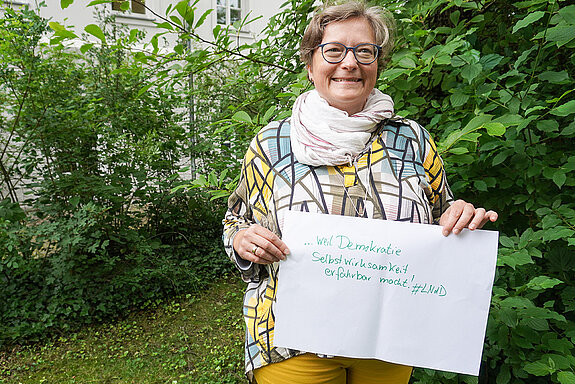 ... weil Demokratie
Selbstwirksamkeit
erfahrbar macht! #LNdD